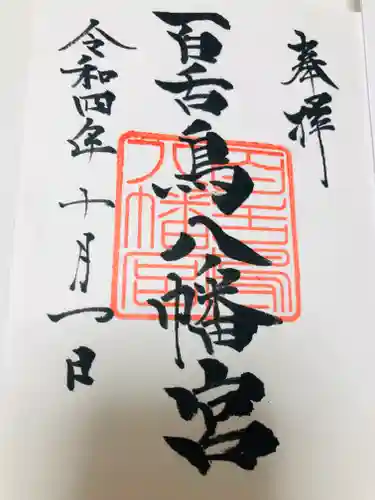 奉拝
百舌鳥八幡宮
百舌鳥八幡宮
令和四年十月一日